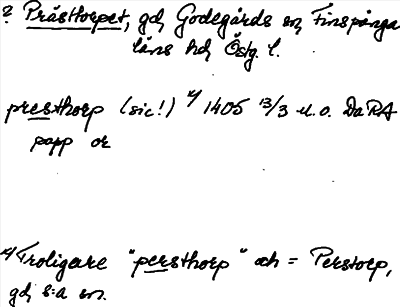 ? Prästtorpet, gd, Godegårds sn, Finspånga
läns hd, Östg. l.
presthorp (sic!) 1) 1405 13/3 u.o. DaRA
papp or
1) Troligare "persthorp" och = Perstorp,
gd, s:a sn.